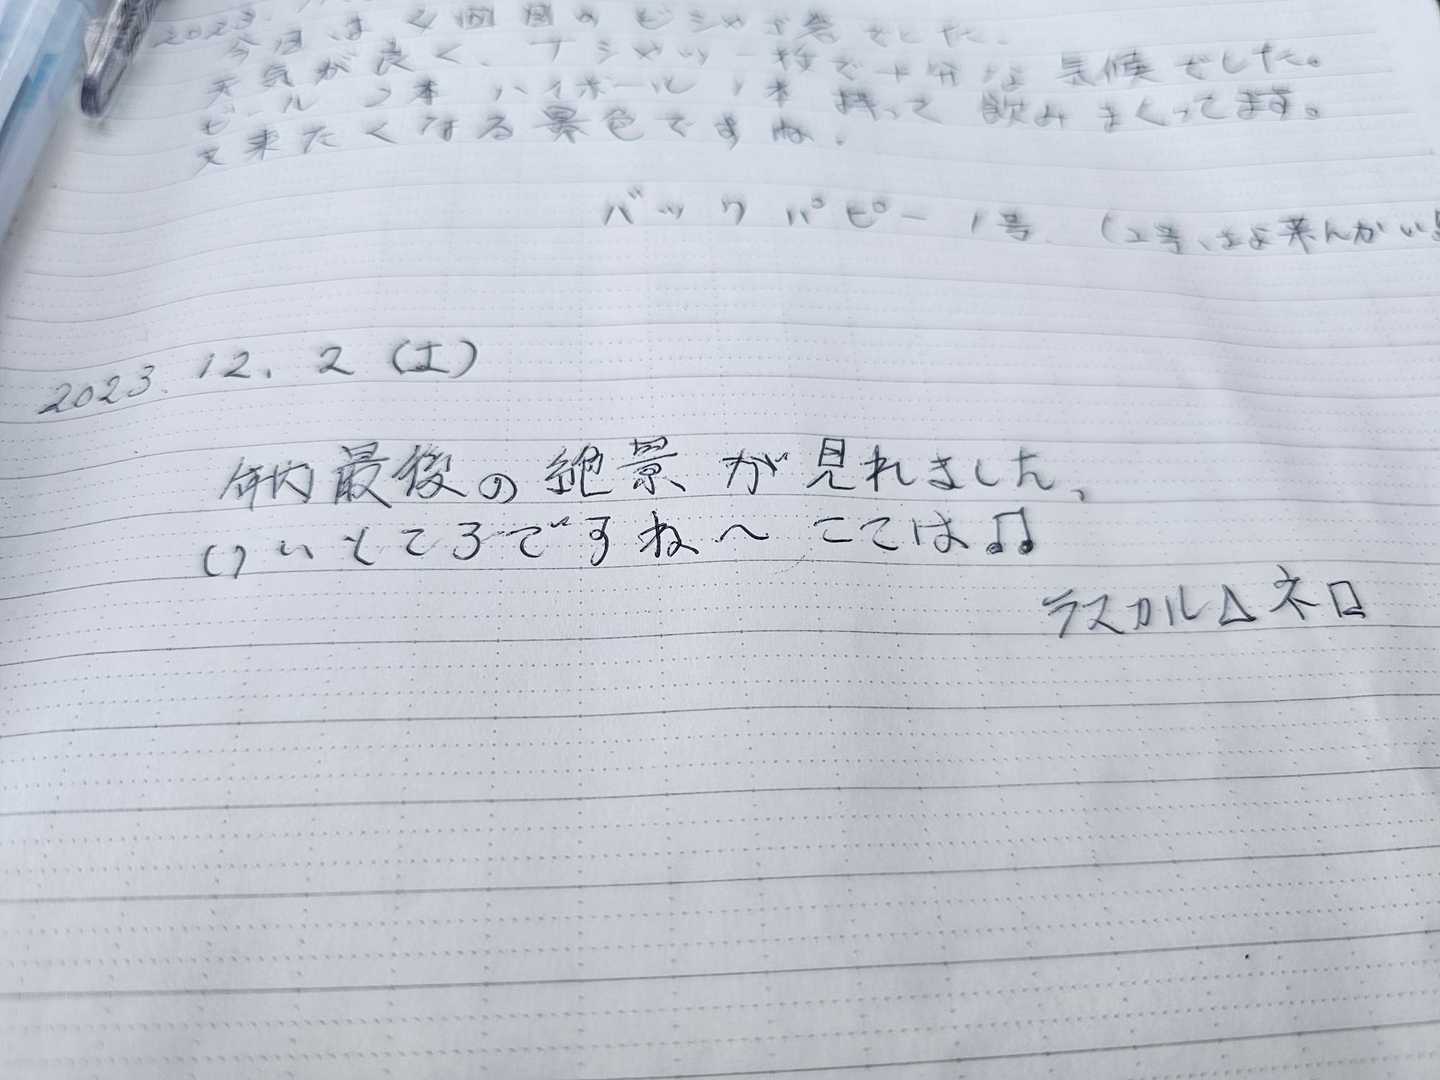 2023.
今日は 4回目の ビシャゴ岳でした.
天気が良く、Tシャツ一枚で十分な 気候でした。
ビール 2本 ハイボール 1本 持って 飲みまくってます。
又来たくなる景色ですね.
バックパピー1号 (2号、はよ来んかい!
2023. 12. 2 (土)
年内最後の絶景が見れました、
いいところですね〜 ここは♫
ラスカル△ネロ